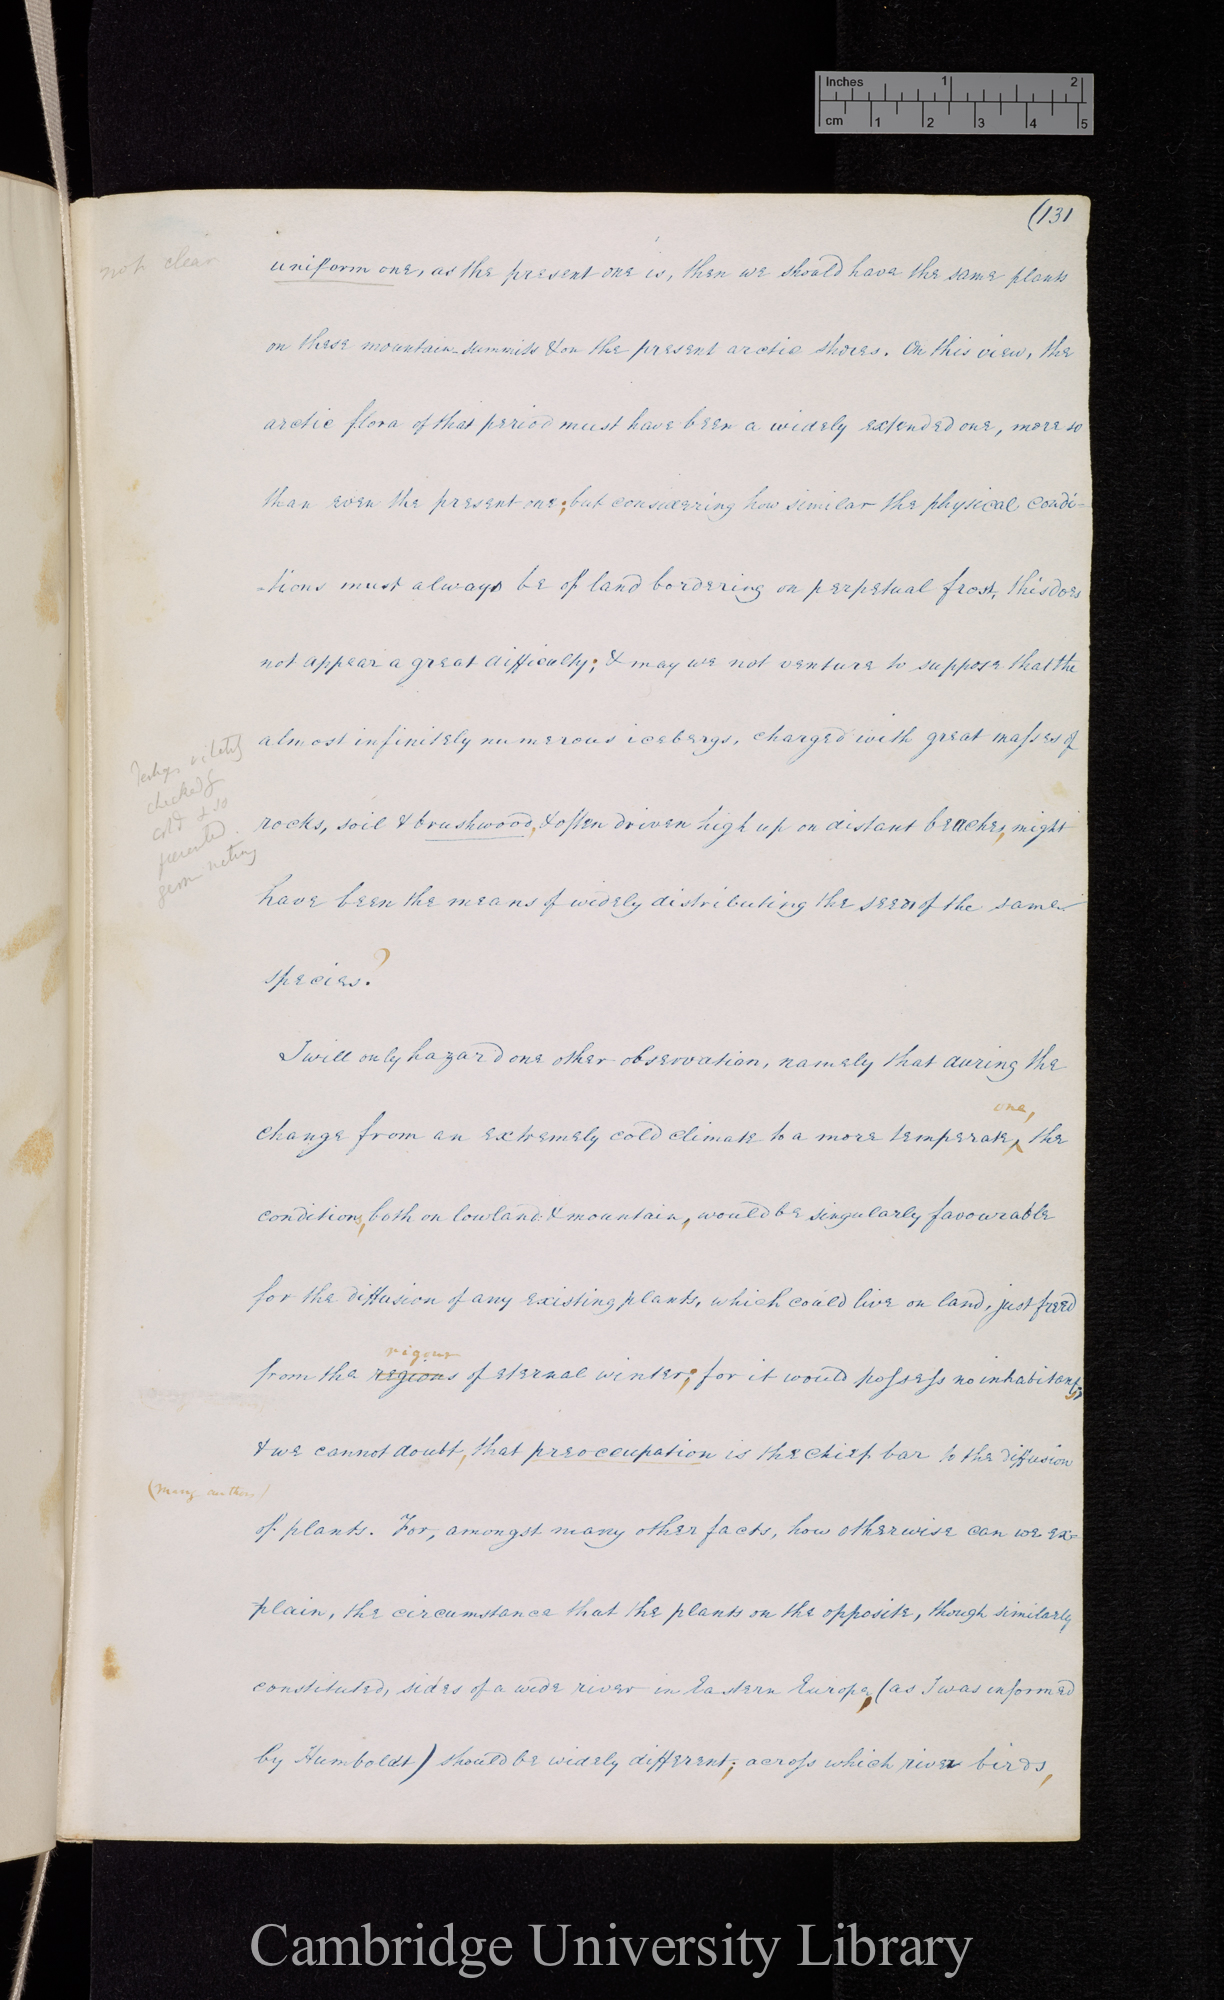 Inches 1 2
cm 1 2 3 4 5
(131
not clear
uniform one, as the present one is, then we should have the same plants
on these mountain-summits & on the present arctic shores. On this view, the
arctic flora of that period must have been a widely extended one, more so
than even the present one; but considering how similar the physical condi-
-tions must always be of land bordering on perpetual frost, this does
not appear a great difficulty; & may we not venture to suppose that the
almost infinitely numerous icebergs, charged with great masses of
Perhaps vitality
checked by
cold & so
prevented
germinating
rocks, soil & brushwood, & often driven high up on distant beaches, might
have been the means of widely distributing the seeds of the same
species.?
I will only hazard one other observation, namely that during the
one,
change from an extremely cold climate to a more temperate, the
conditions, both on lowland & mountain, would be singularly favourable
for the diffusion of any existing plants, which could live on land, just freed
rigour
from the regions of eternal winter; for it would possess no inhabitants;
& we cannot doubt, that preoccupation is the chief bar to the diffusion
(many authors)
of plants. For, amongst many other facts, how otherwise can we ex-
plain, the circumstance that the plants on the opposite, though similarly
constituted, sides of a wide river in Eastern Europe, (as I was informed
by Humboldt) should be widely different; across which river birds,
Cambridge University Library